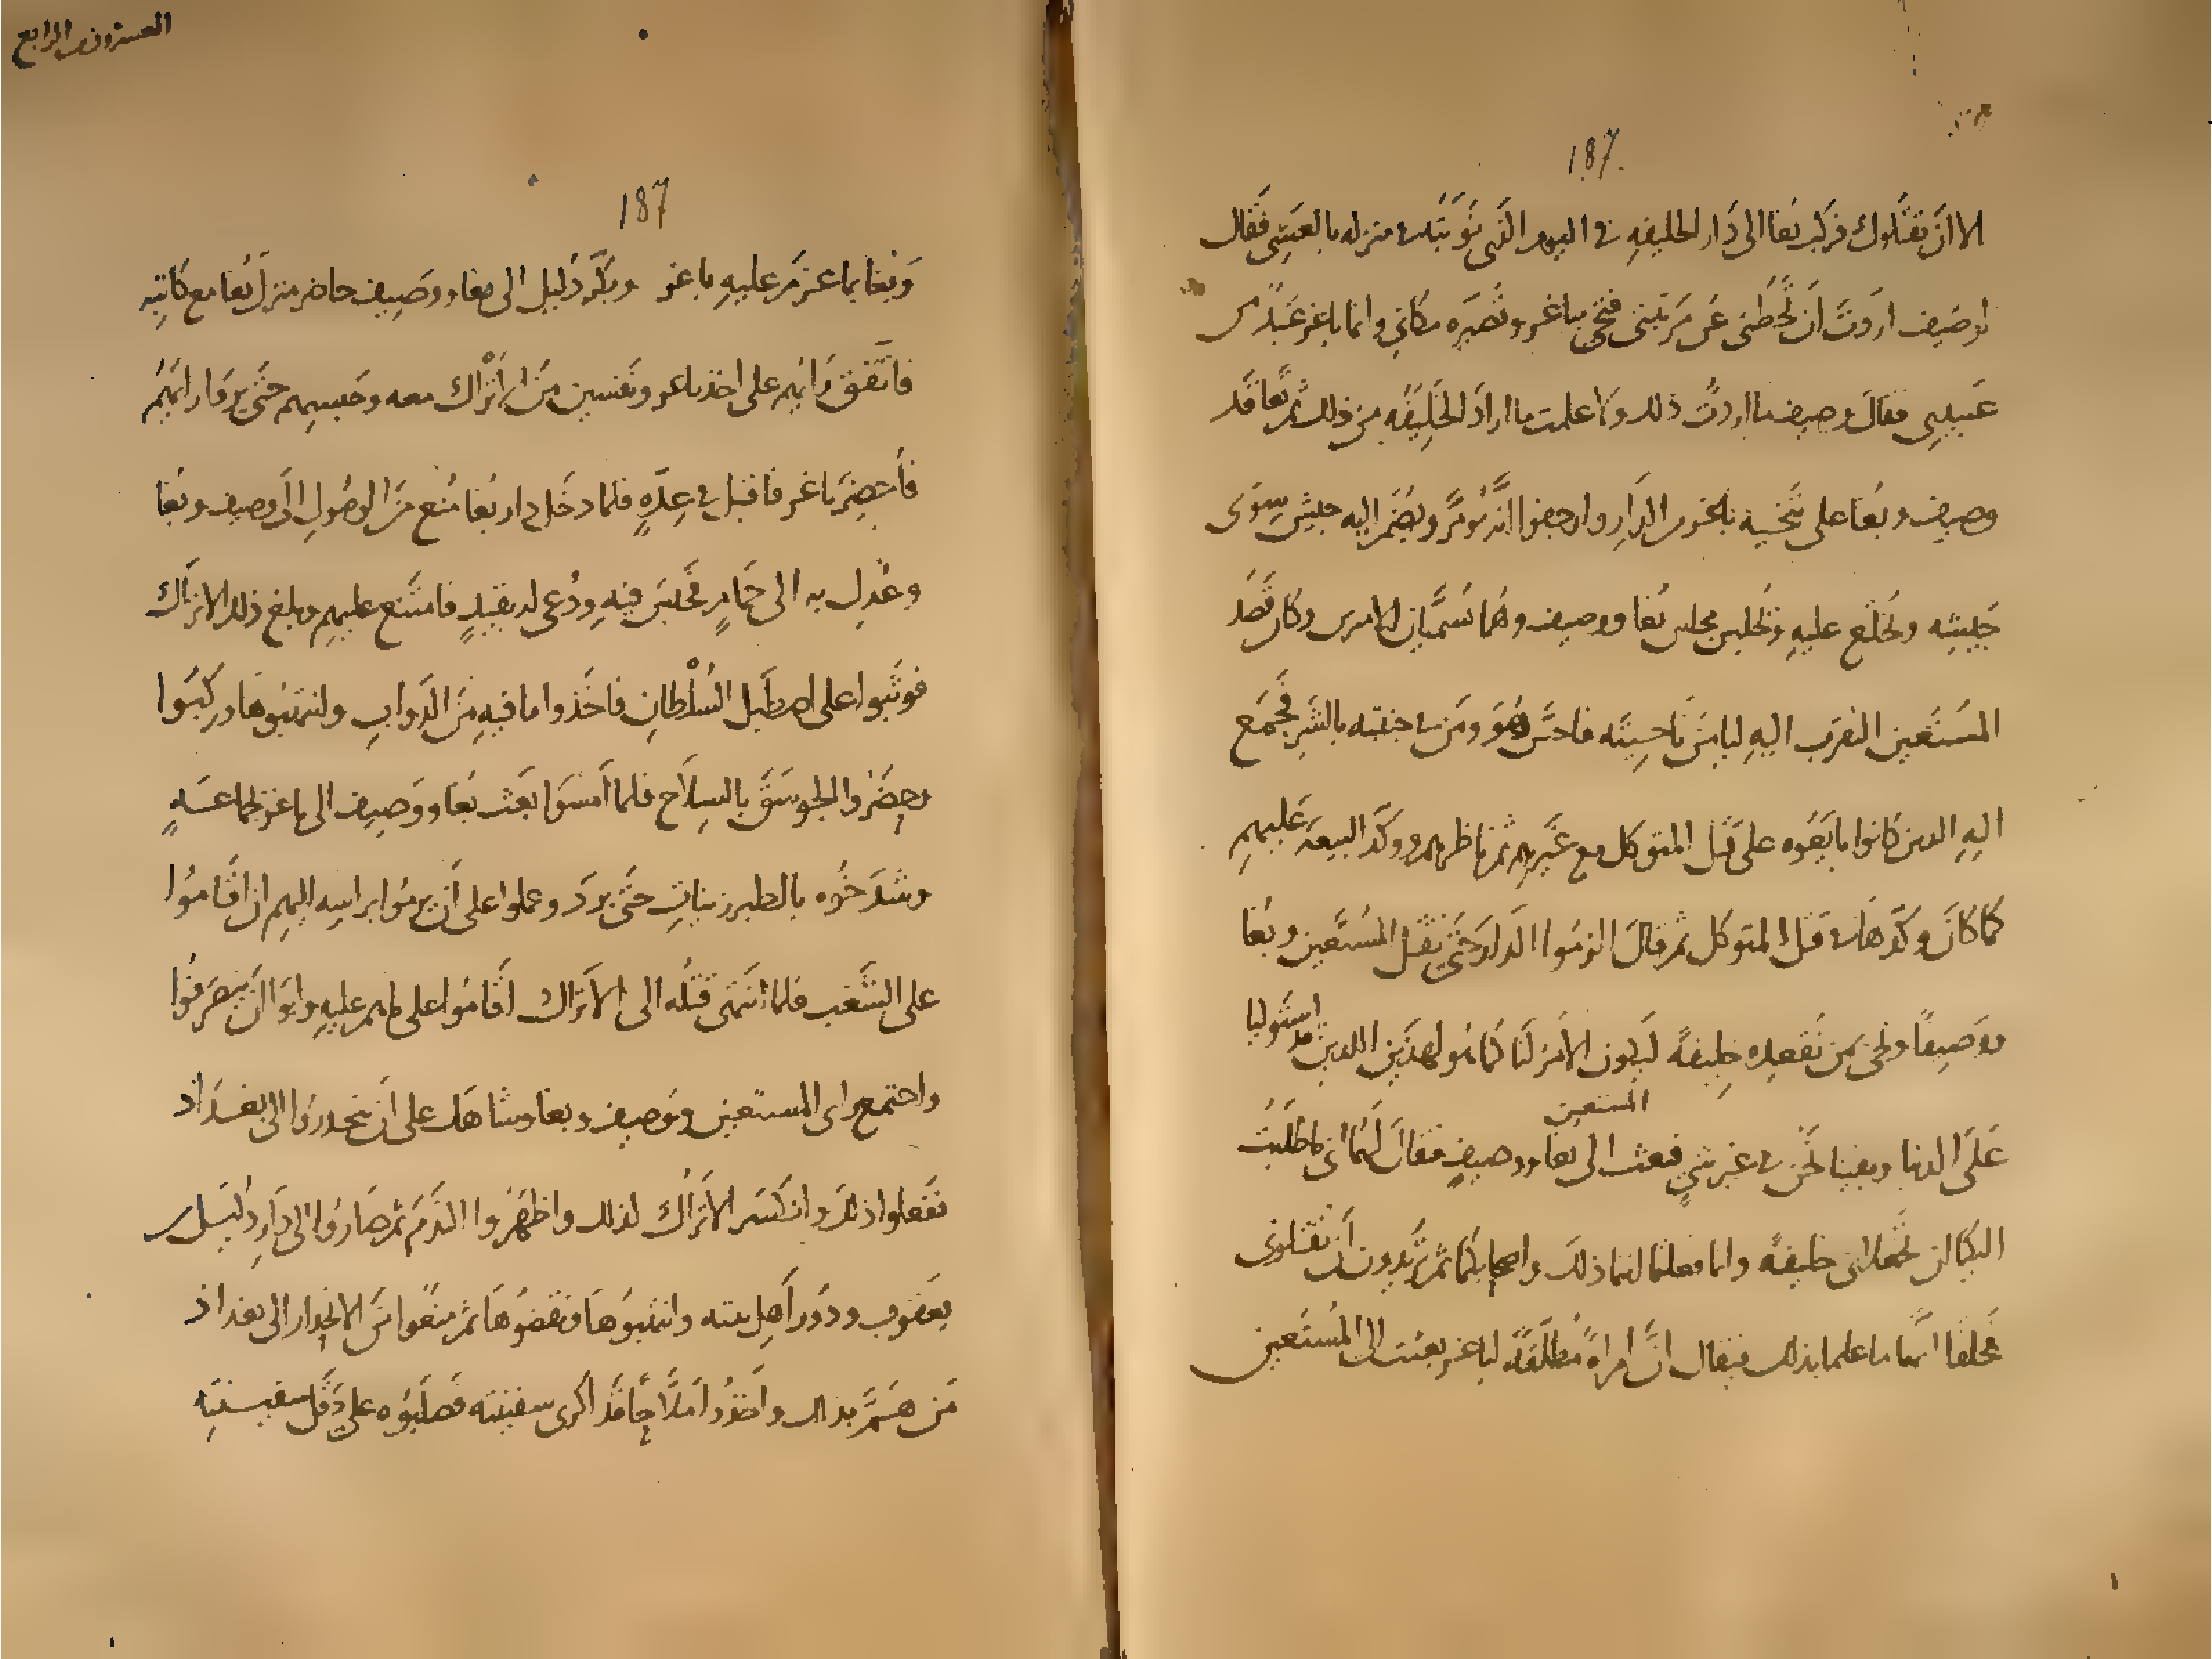 187
الا ان تقتلوك فركب بغا الى دار الخليفه في اليوم الذي نوبته في منزله بالعشي فقال
لوصيف اردت ان تحطني عن مرتبتي فتجي بباغر وتصيره مكاني وانما باغر عبد من
عبيدي فقال وصيف ما اردت ذلك ولا علمت ما اراد الخليفه من ذلك ثم تعاقد
وصيف وبغا على تنحيه باغر من الدار وارجفوا انه يومر ويضم اليه جيش سوى
جيشه ويخلع عليه ويجلس مجلس بغا ووصيف وهما يسميان الاميرين وكان قصد
المستعين التقرب اليه ليامن ناحيته فاحس هو ومن في جنبته بالشر فجمع
اليه الذين كانوا بايعوه على قتل المتوكل مع غيرهم ثم ناظرهم ووكد البيعه عليهم
كما كان وكدها في قتل المتوكل ثم قال الزموا الدار حتى نقتل المستعين وبغا
ووصيفا ونجي بمن نقعده خليفة ليكون الامر لنا كما هو لهذين اللذين قد استوليا
على الدنيا وبقينا نحن في غير شي فبعث المستعين الى بغا ووصيف فقال لهما اني ما طلبت
اليكما ان تجعلاني خليفة وانما فعلتما انتما ذلك واصحابكما ثم تريدون ان تقتلوني
فحلفا انهما ما علما بذلك فيقال ان امراة مطلقة لباغر بعثت الى المستعين
العشرون من الرابع
187
وبغا بما عزم عليه باغر وبكر دليل الى بغا ووصيف حاضر منزل بغا مع كاتبه
فاتفق رايهم على اخذ باغر ونفسين من الاتراك معه وحبسهم حتى يروا رايهم
فاحضر باغر فاقبل في عدة فلما دخل دار بغا منع من الوصول الى وصيف وبغا
وعدل به الى حمام فحبس فيه ودعى له بقيد فامتنع عليهم وبلغ ذلك الاتراك
فوثبوا على اصطبل السلطان فاخذوا ما فيه من الدواب وانتهبوها وركبوا
وحضروا الجوسق بالسلاح فلما امسوا بعث بغا ووصيف الى باغر بجماعة
وشدخوه بالطبرزينات حتى برد وعملوا على ان يرموا براسه اليهم ان اقاموا
على الشغب فلما انتهى قتله الى الاتراك اقاموا على ما هم عليه وابوا ان ينصرفوا
واجتمع راى المستعين ووصيف وبغا وشاهك على ان ينحدروا الى بغداد
ففعلوا ذلك وانكسر الاتراك لذلك واظهروا الندم ثم صاروا الى دار دليل بن
يعقوب ودور اهل بيته وانتهبوها ونقضوها ثم منعوا من الانحدار الى بغداد
من هم بذلك واخذوا ملاحا قد اكرى سفينته فصلبوه على دقل سفينته